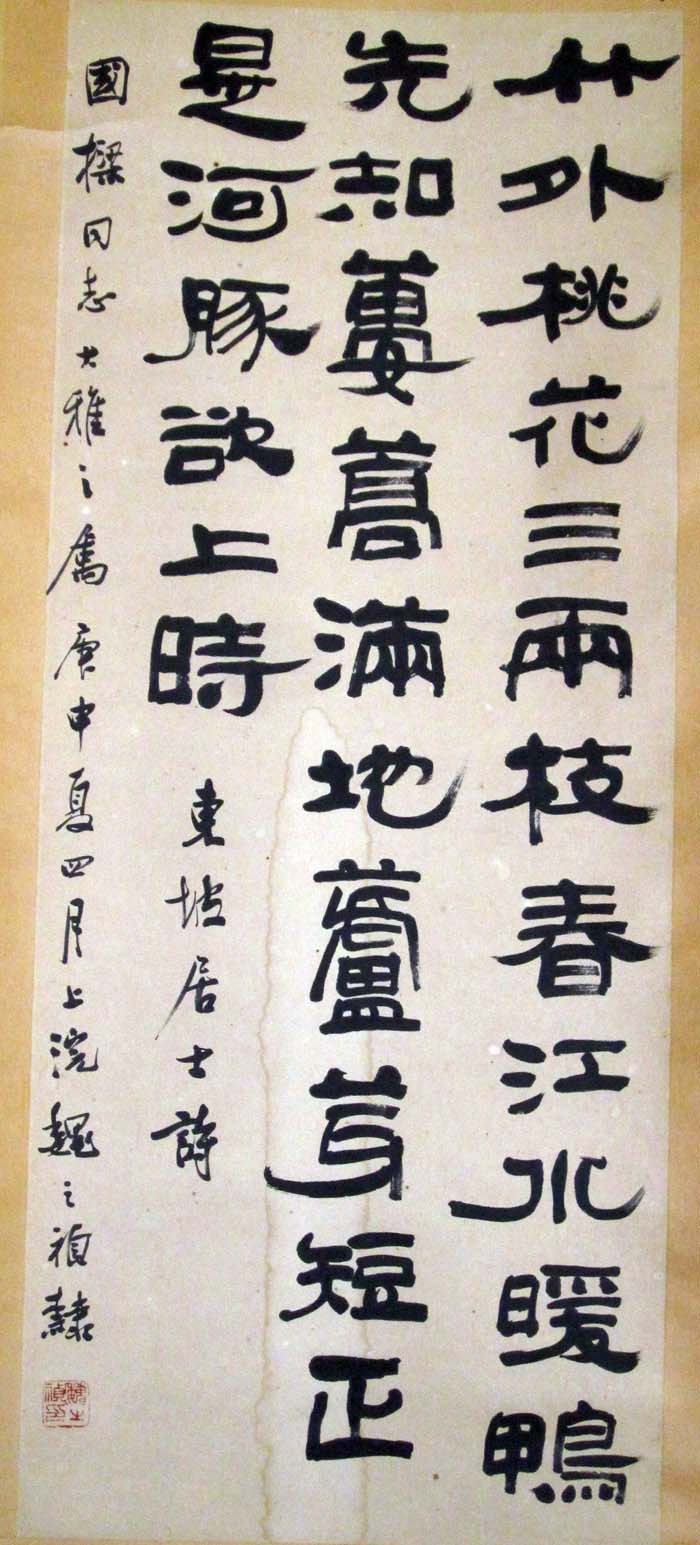 竹外桃花三兩枝春江水暖鴨
先知蔞蒿滿地蘆芽短正
是河豚欲上時
東坡居士詩
國樑同志大雅之屬 庚申夏四月上浣魏之禎隸
魏之禎印